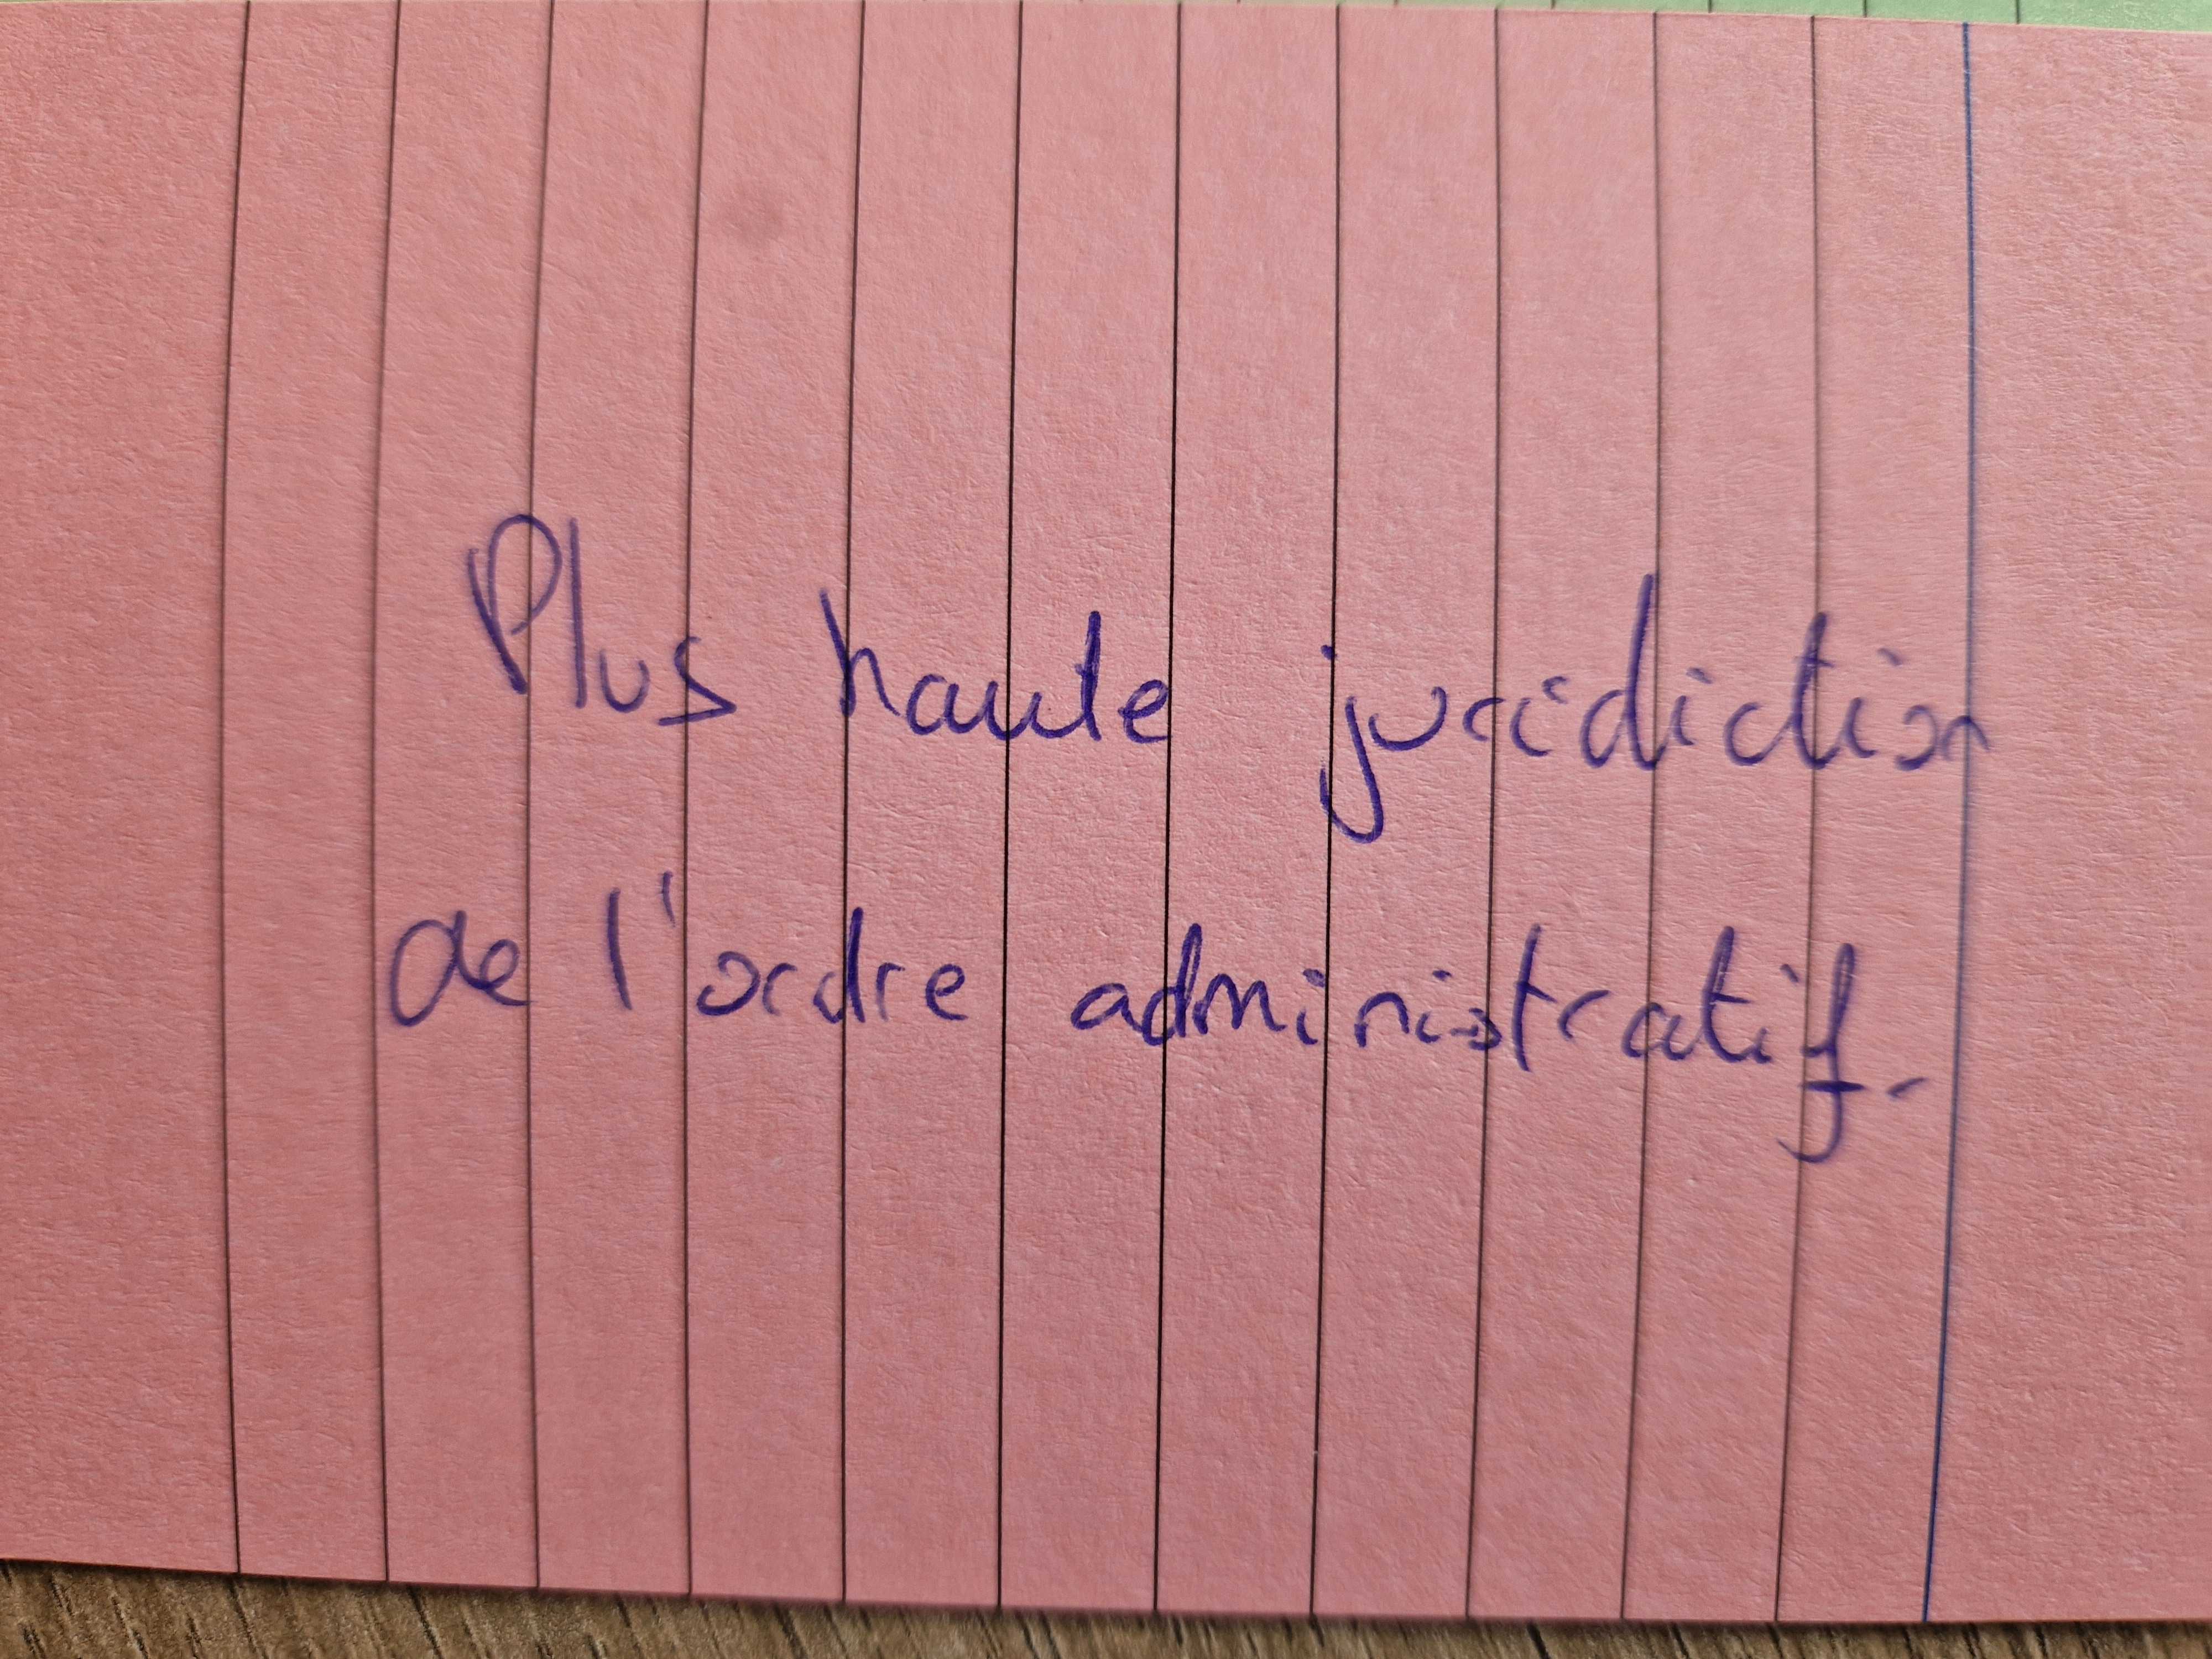 Plus haute juridiction
de l'ordre administratif.